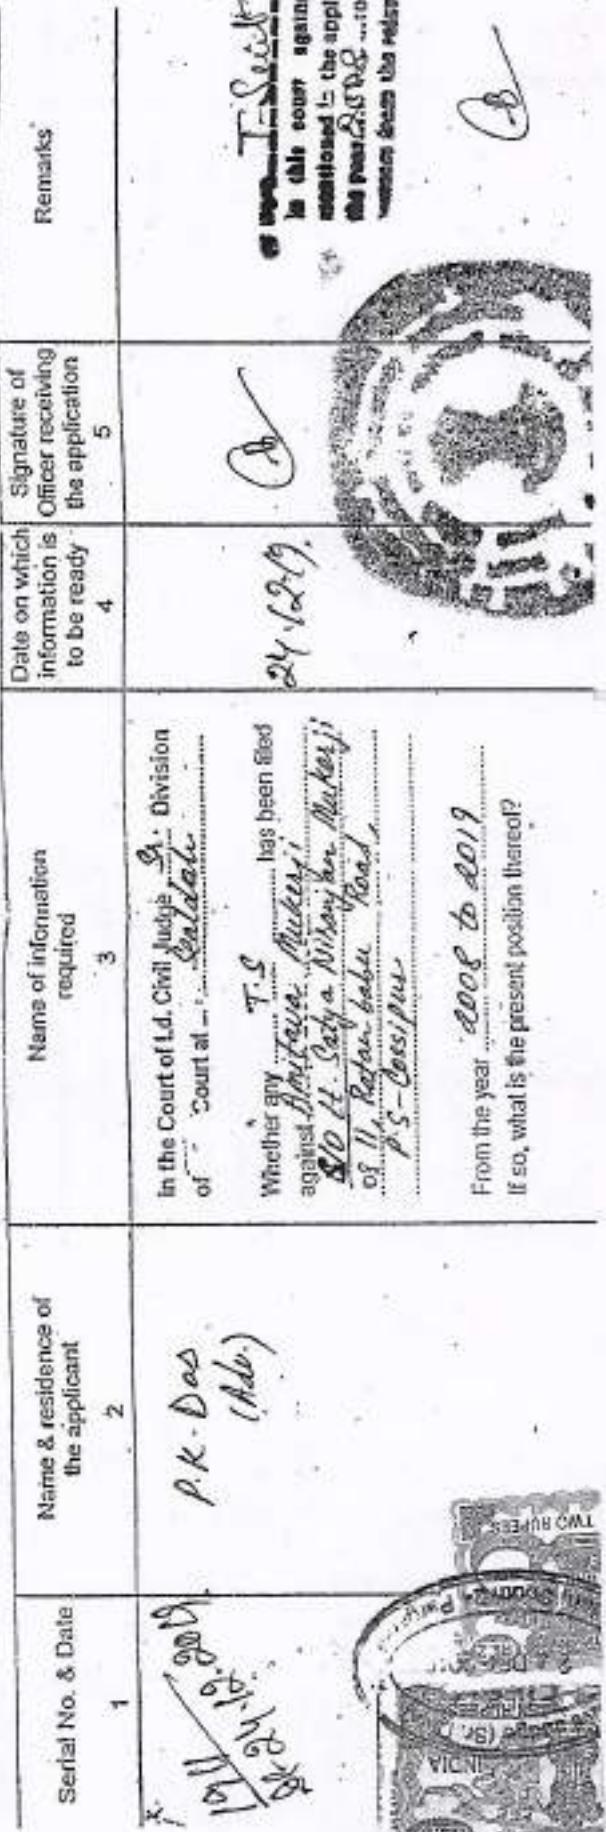 Serial No. & Date
1
Name & residence of
the applicant
2
Name of information
required
3
Date on which
information is
to be ready
4
Signature of
Officer receiving
the application
5
Remarks
24.12.2019.
P.K. Das
(Adv.)
In the Court of Ld. Civil Judge Sr. Division
of Court at Sealdah
Whether any T.S has been filed
against Amitava Mukerji
S/O Lt. Satya Niranjan Mukerji
of 11, Ratan babu Road,
P.S-Cossipur
From the year 2008 to 2019
If so, what is the present position thereof?
24.12.19.
T. Suit
in this court again
mentioned in the appl
the year 2008
TWO RUPEES
INDIA